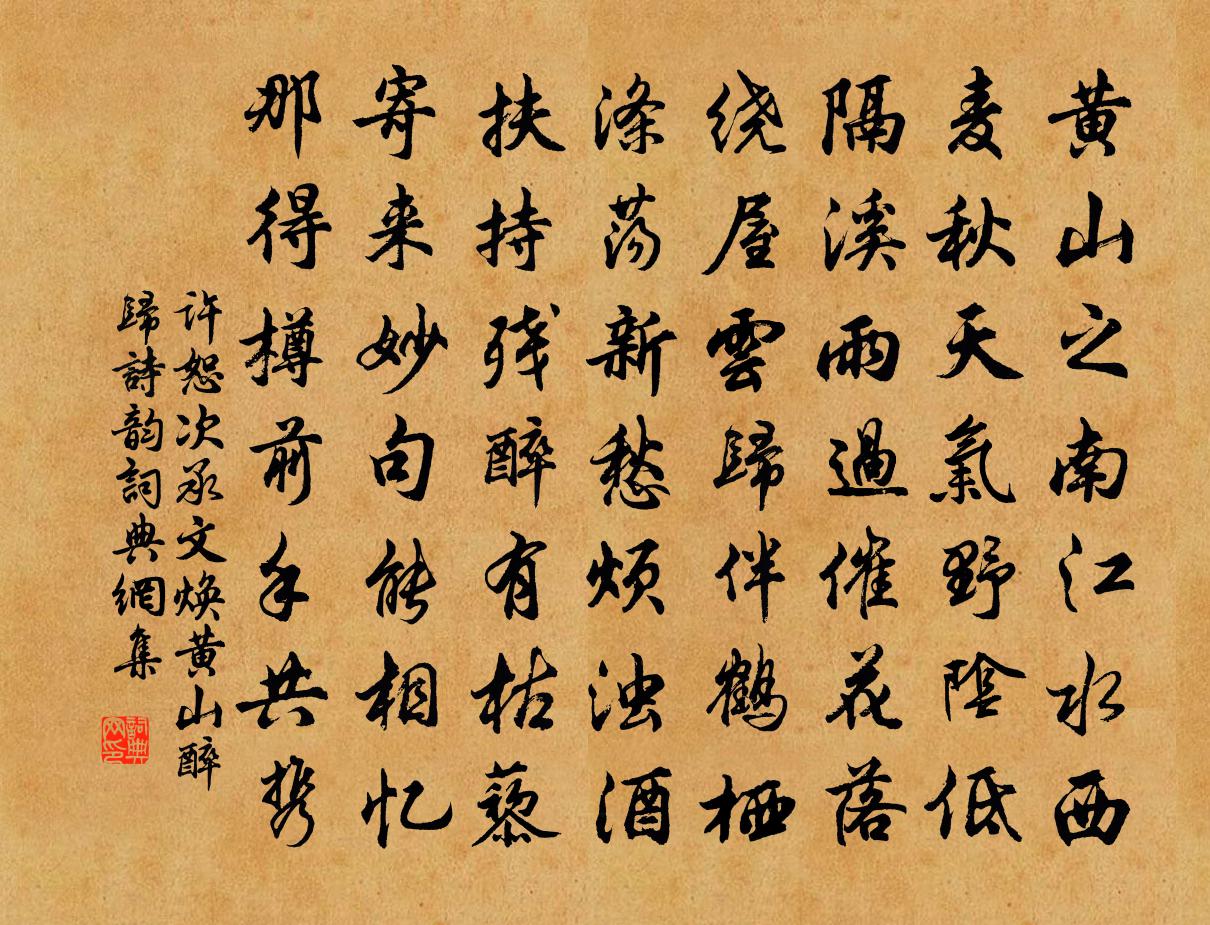 黄山之南江水西
麦秋天氣野陰低
隔溪雨過催花落
绕屋雲歸伴鶴栖
涤荡新愁烦浊酒
扶持残醉有枯藜
寄来妙句能相忆
那得樽前手共携
许恕次承文焕黄山醉
歸詩韵詞典網集
詞典网印